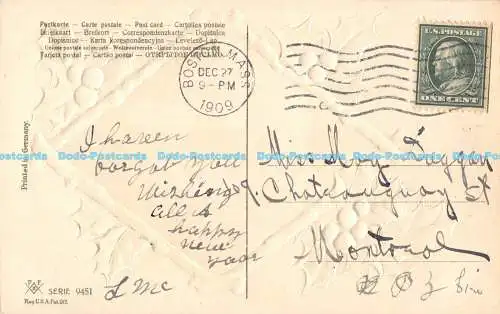 Postkarte - Carte postale - Post card - Cartolina postale
Briefkaart - Brefkort - Correspondenzkarte - Dopisnica
Dopisnice - Karta korespondencyjna - Levelező-Lap
Unione postale universale - Weltpostverein - Union postale universelle
Tarjeta postal - Cartão postal - ОТКРЫТОЕ ПИСЬМО.
BOSTON, MASS.
DEC 27
9-PM
1909
U.S. POSTAGE
ONE CENT
Printed in Germany.
I haven
forgot you
Wishing
all a
happy
new
year
L Mc
Miss May Duggan
9. Chateauguay St
Montreal
SERIE 9451
Reg. U.S.A. Pat. Off.
Dodo-Postcards Dodo-Postcards Dodo-Postcards Dodo-Postcards Dodo-Postcards